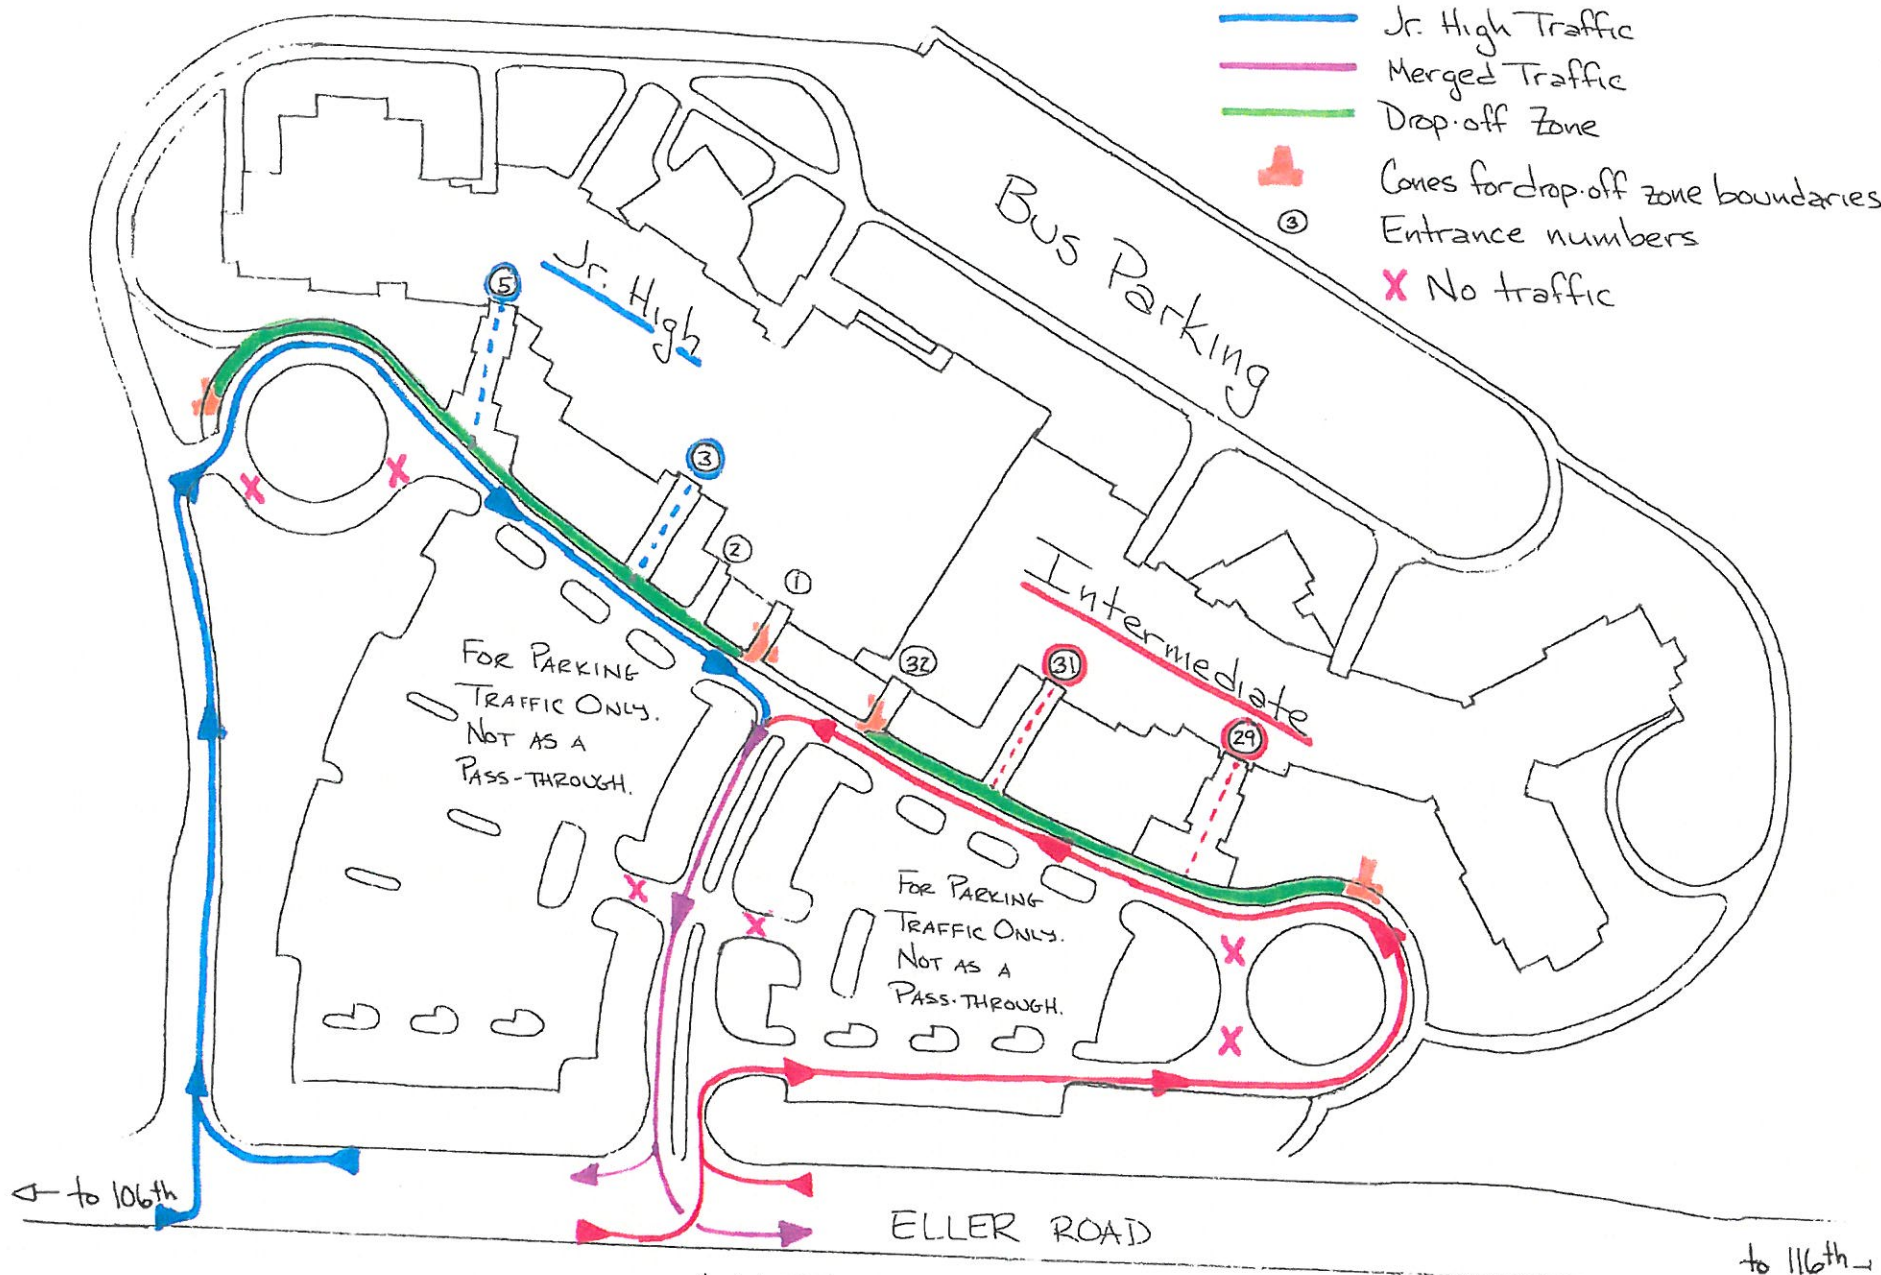 Jr. High Traffic
Merged Traffic
Drop-off Zone
Cones for drop-off zone boundaries
③ Entrance numbers
X No traffic
Bus Parking
Jr. High
5
3
2
1
Intermediate
32
31
29
FOR PARKING
TRAFFIC ONLY.
NOT AS A
PASS-THROUGH.
FOR PARKING
TRAFFIC ONLY.
NOT AS A
PASS-THROUGH.
to 106th
ELLER ROAD
to 116th